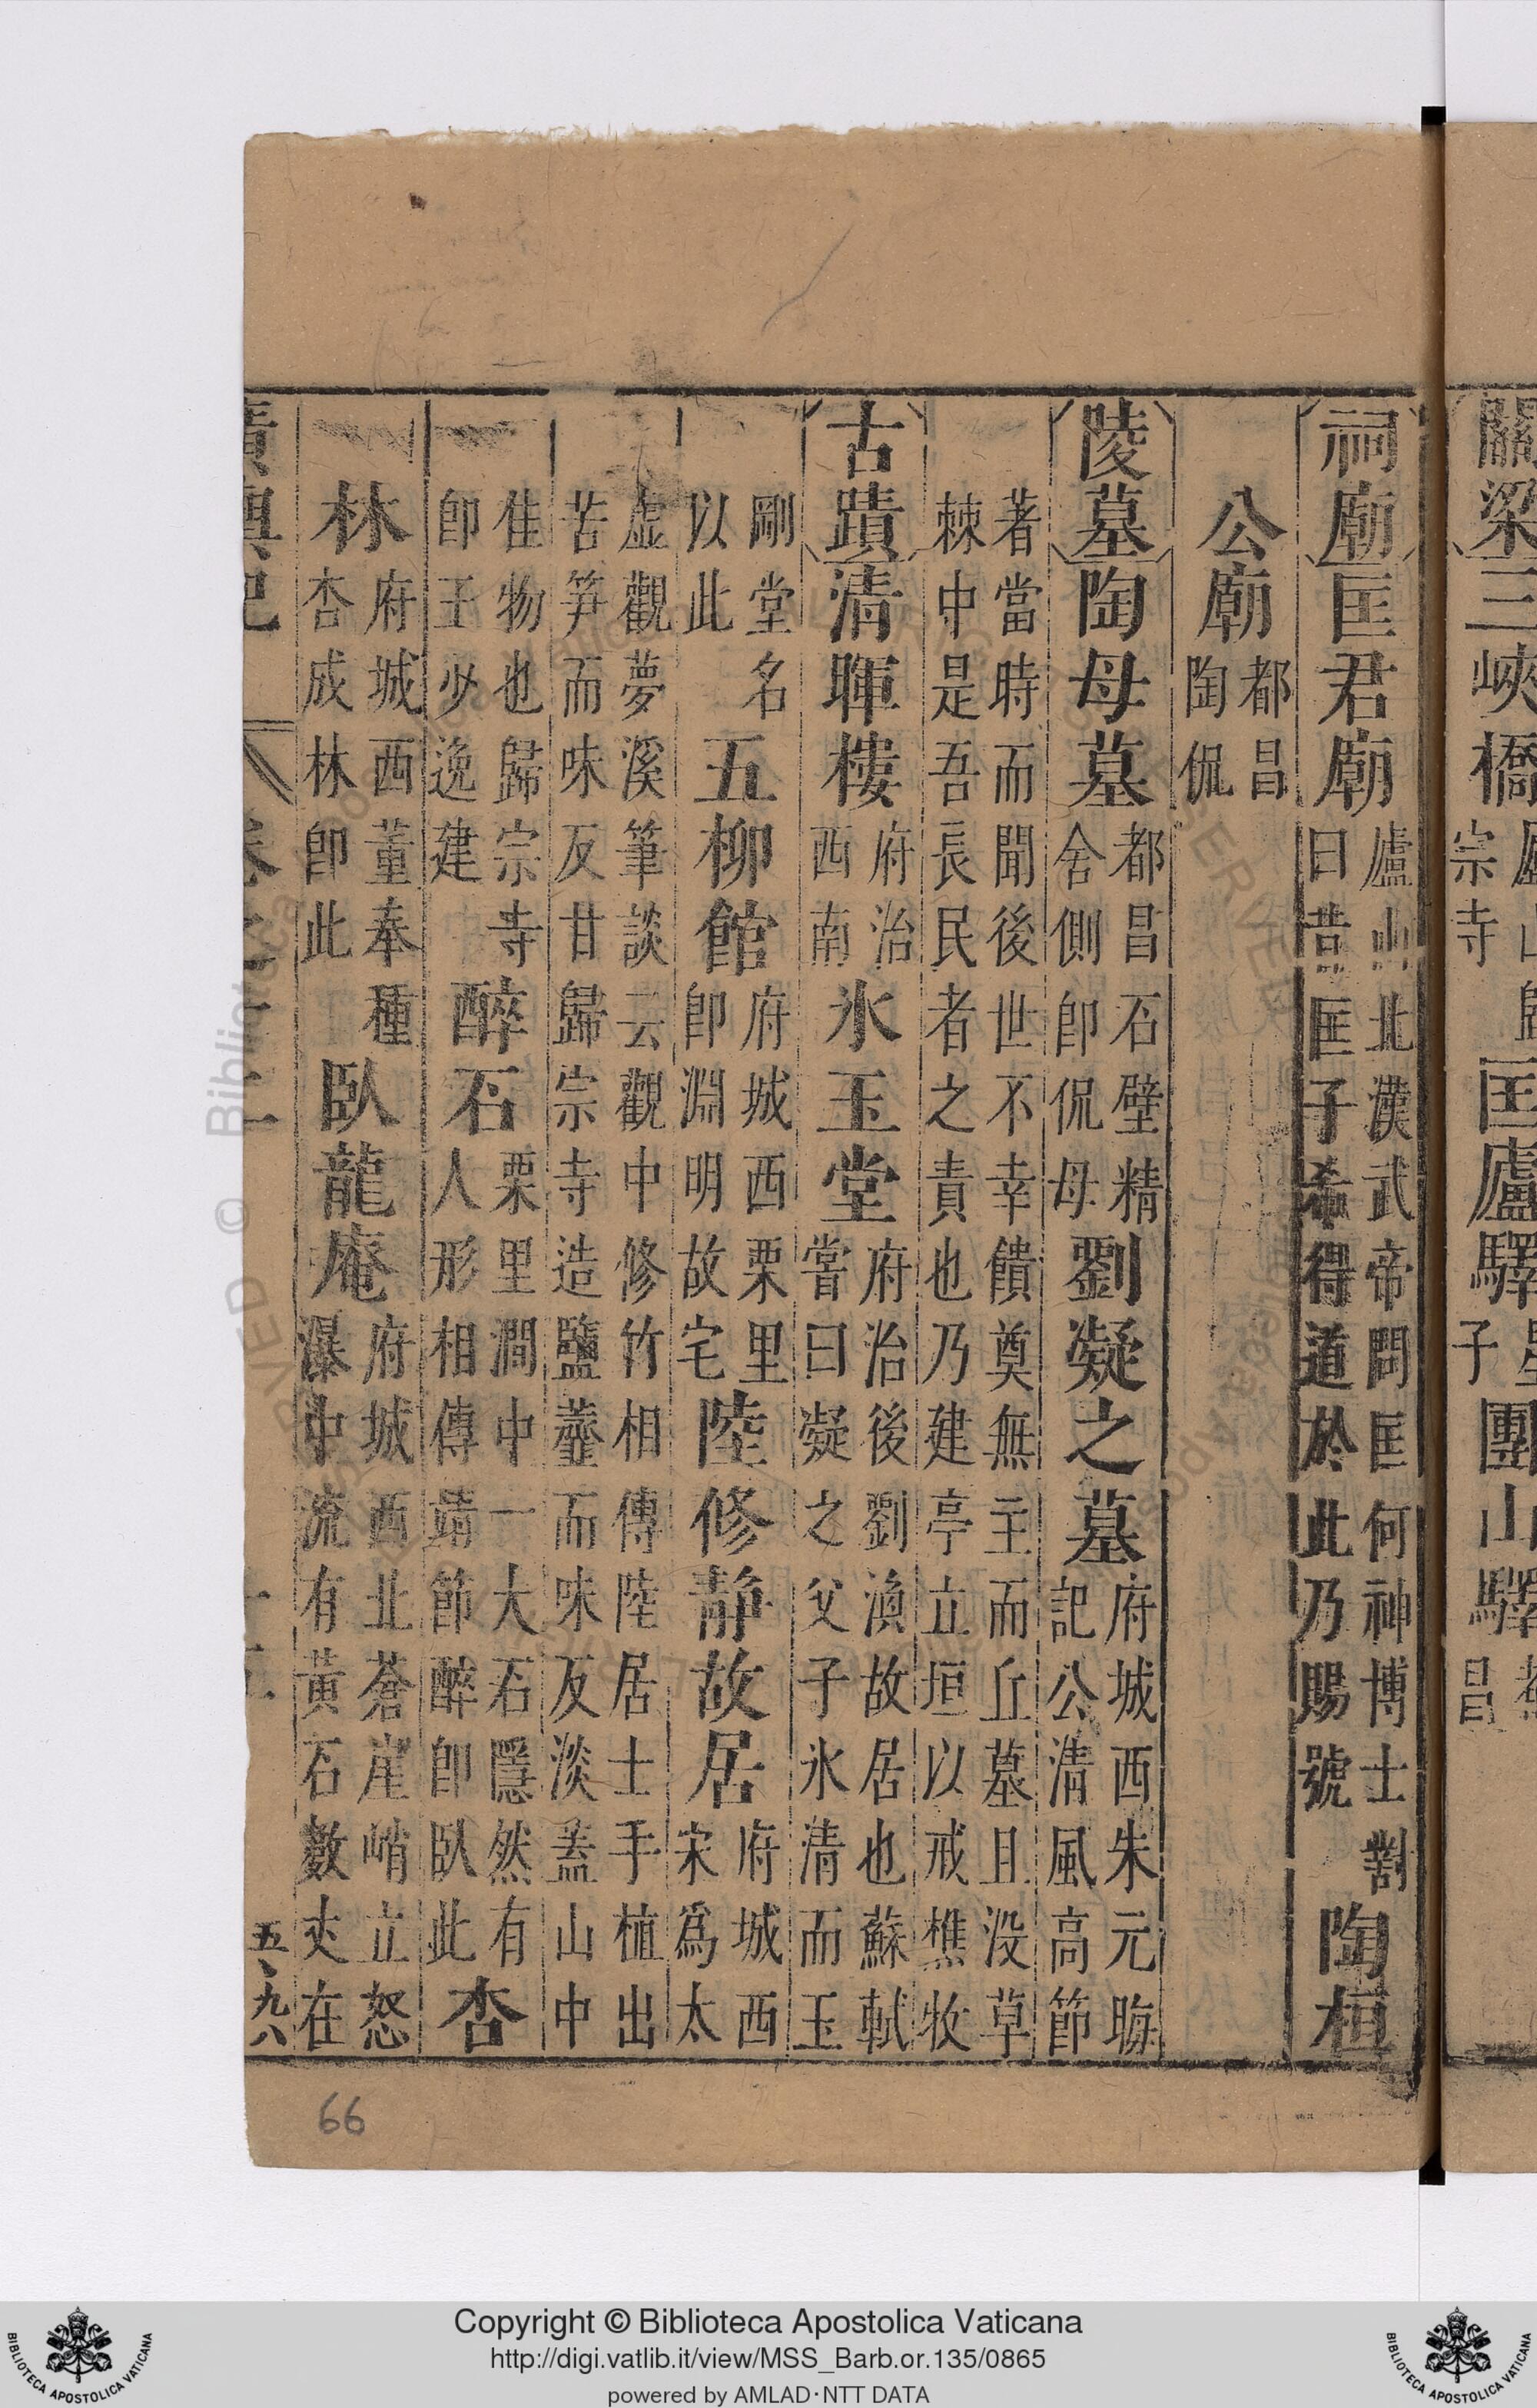 關梁三峽橋宗寺匡廬驛子團山驛昌
祠廟匡君廟廬山北漢武帝問匡何神博士對曰昔匡子希得道於此乃賜號陶桓
公廟都昌陶侃
陵墓陶母墓都昌石壁精舍側卽侃母劉凝之墓府城西朱元晦記公清風高節
著當時而聞後世不幸饋奠無主而丘墓且没草棘中是吾長民者之責也乃建亭立垣以戒樵牧
古蹟清暉樓府治西南氷玉堂府治後劉渙故居也蘇軾嘗曰凝之父子氷清而玉
剛堂名以此五柳館府城西栗里卽淵明故宅陸修靜故居府城西宋爲太
虛觀夢溪筆談云觀中修竹相傳陸居士手植出苦笋而味反甘歸宗寺造鹽虀而味反淡蓋山中
佳物也歸宗寺卽王少逸建醉石栗里澗中一大石隱然有人形相傳靖節醉卽臥此杏
林府城西董奉種杏成林卽此臥龍庵府城西北蒼崖峭立怒瀑中流有黃石數丈在
廣輿記
五、九八
66
Copyright © Biblioteca Apostolica Vaticana
http://digi.vatlib.it/view/MSS_Barb.or.135/0865
powered by AMLAD·NTT DATA
BIBLIOTECA APOSTOLICA VATICANA
BIBLIOTECA APOSTOLICA VATICANA